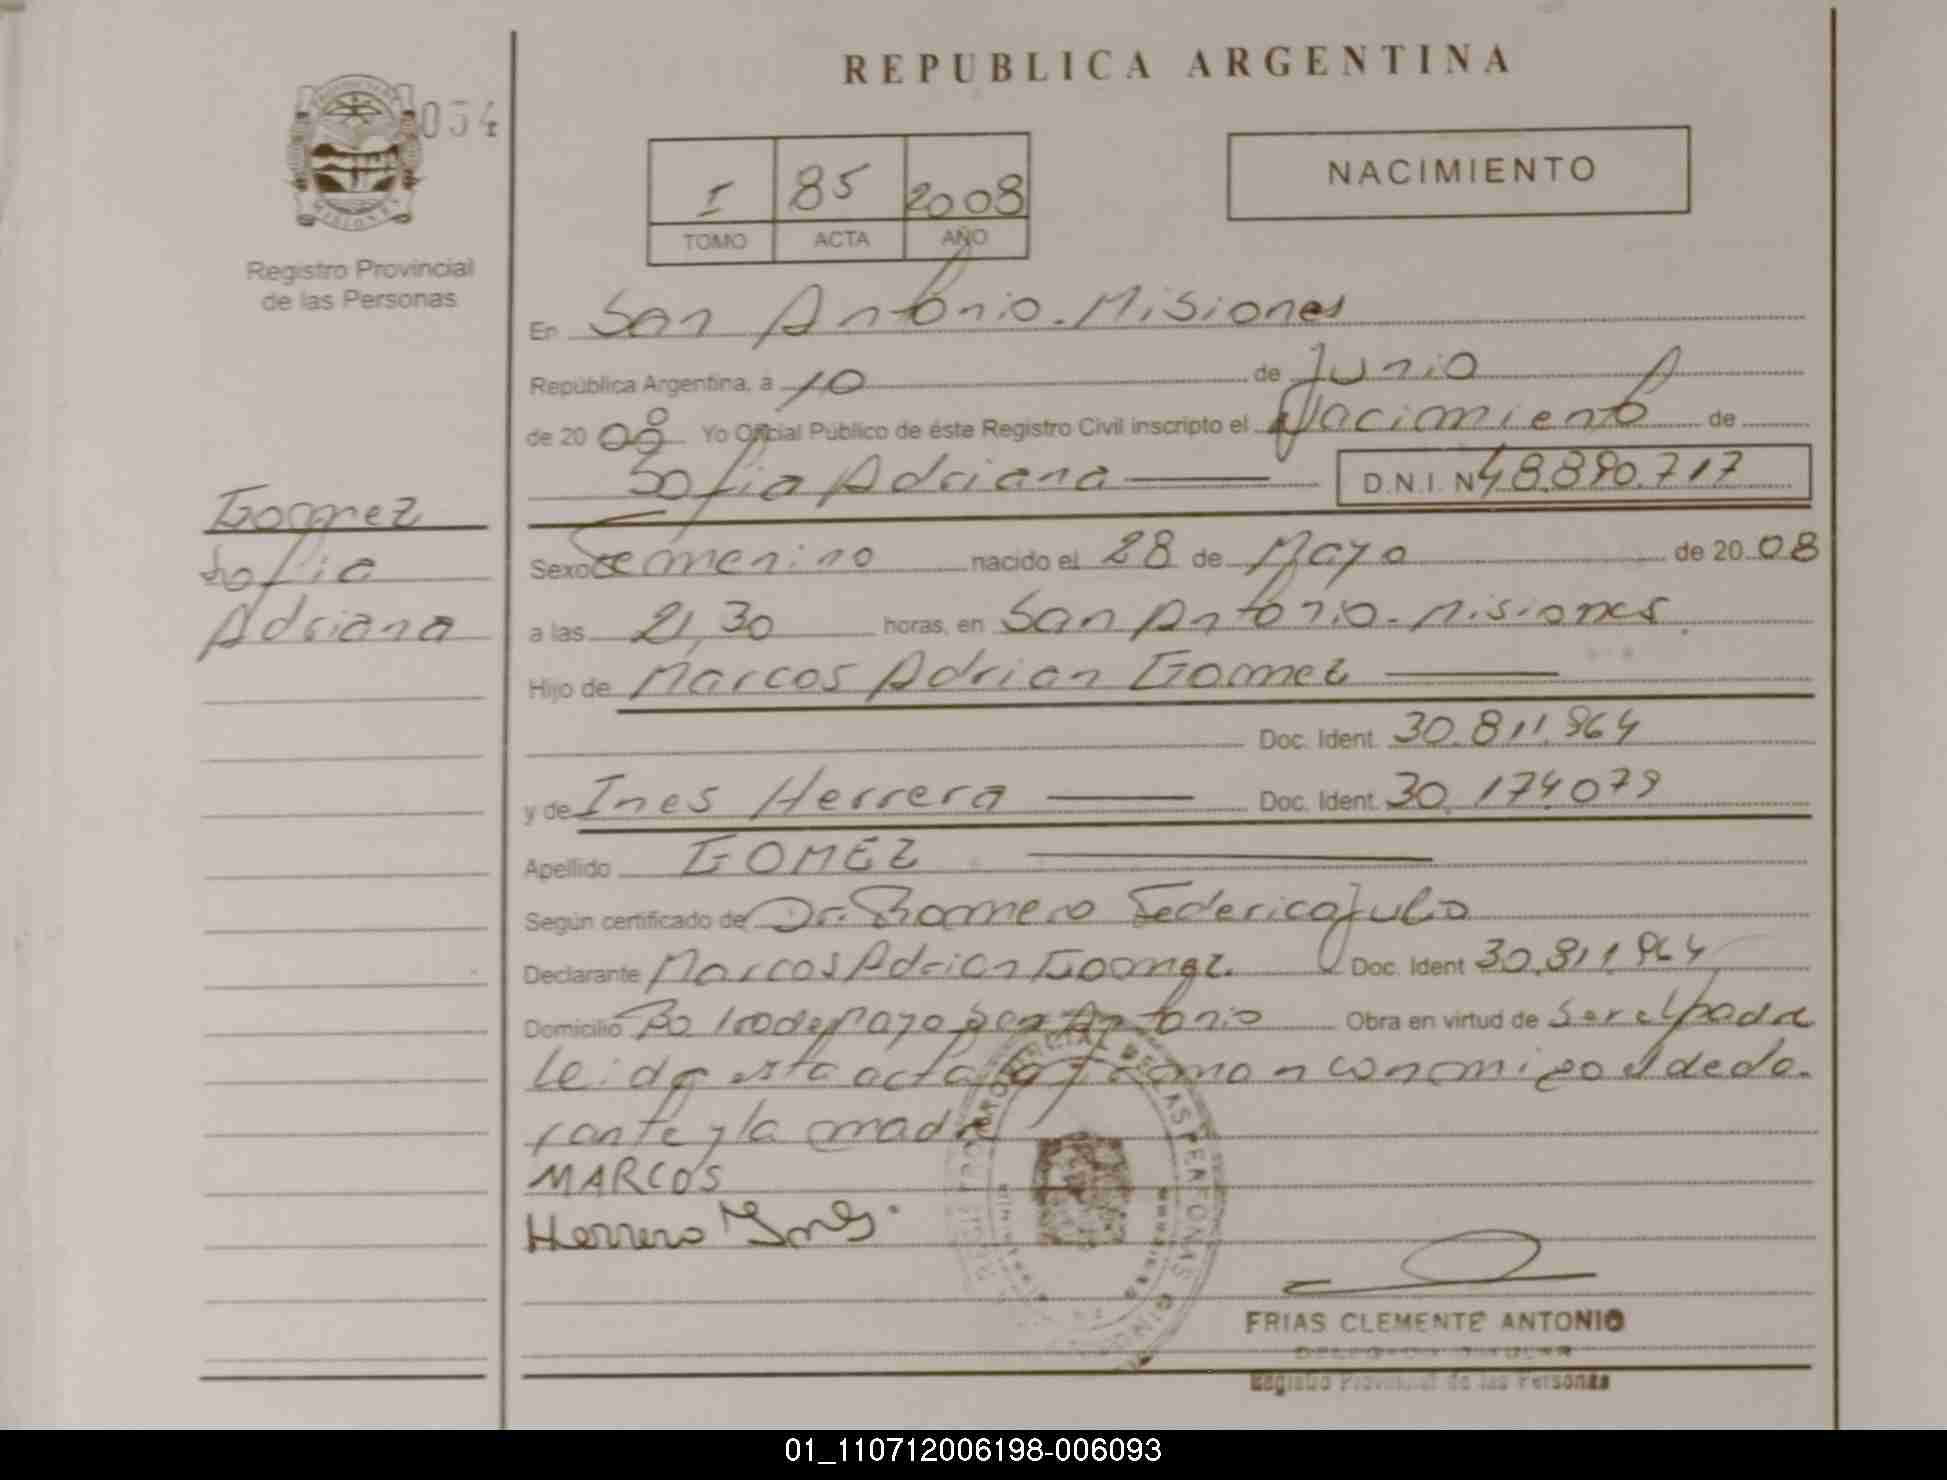 REPUBLICA ARGENTINA
054
PROVINCIA DE
MISIONES
Registro Provincial
de las Personas
I 85 2008
TOMO ACTA AÑO
NACIMIENTO
En San Antonio. Misiones
República Argentina, a 10 de Junio
de 20 08 Yo Oficial Público de éste Registro Civil inscripto el Nacimiento de
Sofia Adriana D.N.I. Nº 48.890.717
Gomez
Sofia
Adriana
Sexo Femenino nacido el 28 de Mayo de 20 08
a las 21,30 horas, en San Antonio - Misiones.
Hijo de Marcos Adrian Gomez
Doc. Ident. 30.811.964
y de Ines Herrera Doc. Ident. 30.174.079
Apellido GOMEZ
Según certificado de Dr. Romero Federico Julio
Declarante Marcos Adrian Gomez. Doc. Ident 30.811.964
Domicilio Bo 1ro de Mayo San Antonio Obra en virtud de Ser el padre
Leida esta acta la firman conmigo el decla-
rante y la madre
MARCOS
Herrera Ines.
FRIAS CLEMENTE ANTONIO
DELEGADO TITULAR
Registro Provincial de las Personas
01_110712006198-006093